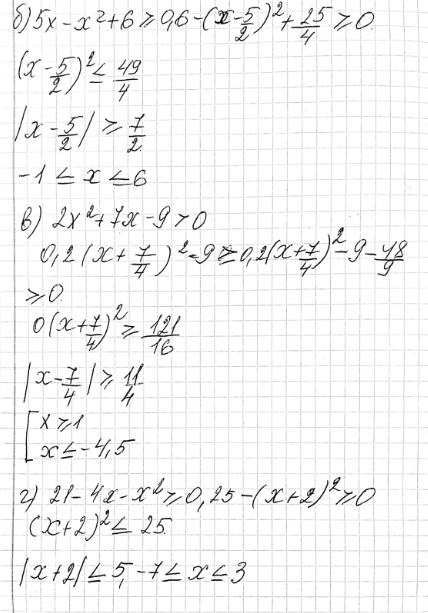 б) 5x - x² + 6 ≥ 0, 6 - (x - 5/2)² + 25/4 ≥ 0
(x - 5/2)² ≤ 49/4
|x - 5/2| ≥ 7/2
-1 ≤ x ≤ 6
в) 2x² + 7x - 9 > 0
0,2(x + 7/4)² - 9 ≥ 0,2(x + 7/4)² - 9 - 48/9
≥ 0
0(x + 7/4)² ≥ 121/16
|x - 7/4| ≥ 11/4
[ x ≥ 1
x ≤ -4,5
г) 21 - 4x - x² ≥ 0, 25 - (x + 2)² ≥ 0
(x + 2)² ≤ 25
|x + 2| ≤ 5, -7 ≤ x ≤ 3